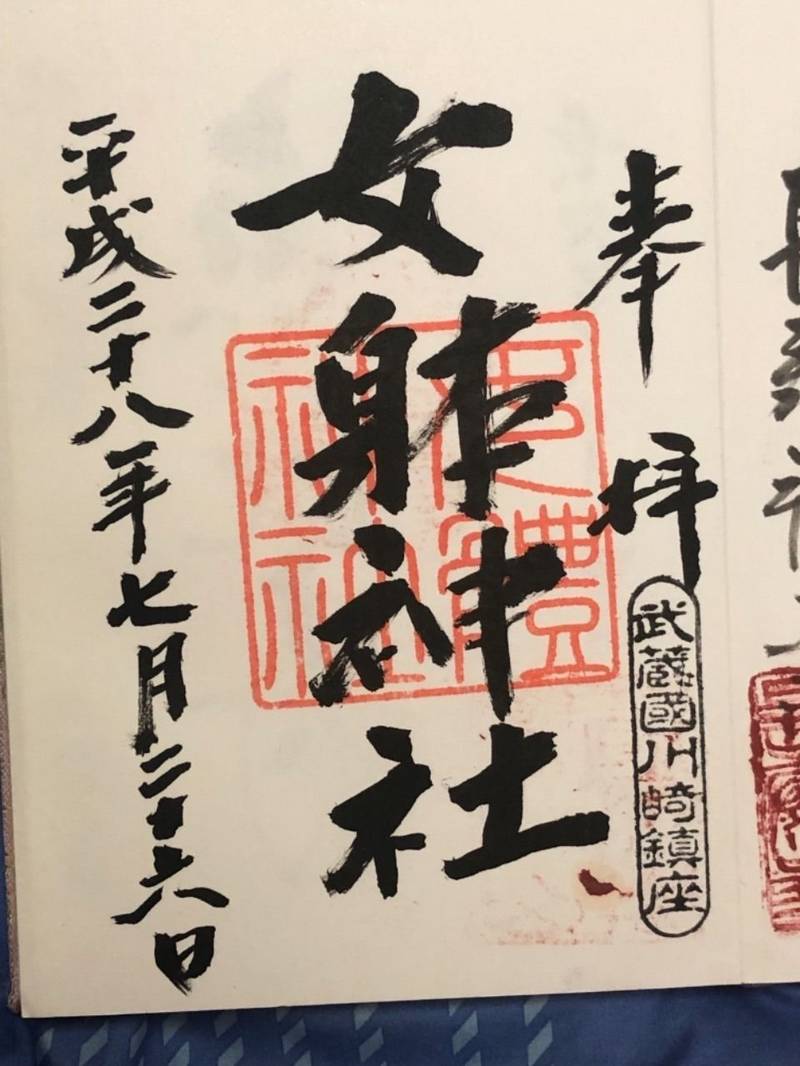 奉拝
武蔵國川崎鎮座
女躰神社
女體神社
平成二十八年七月二十六日